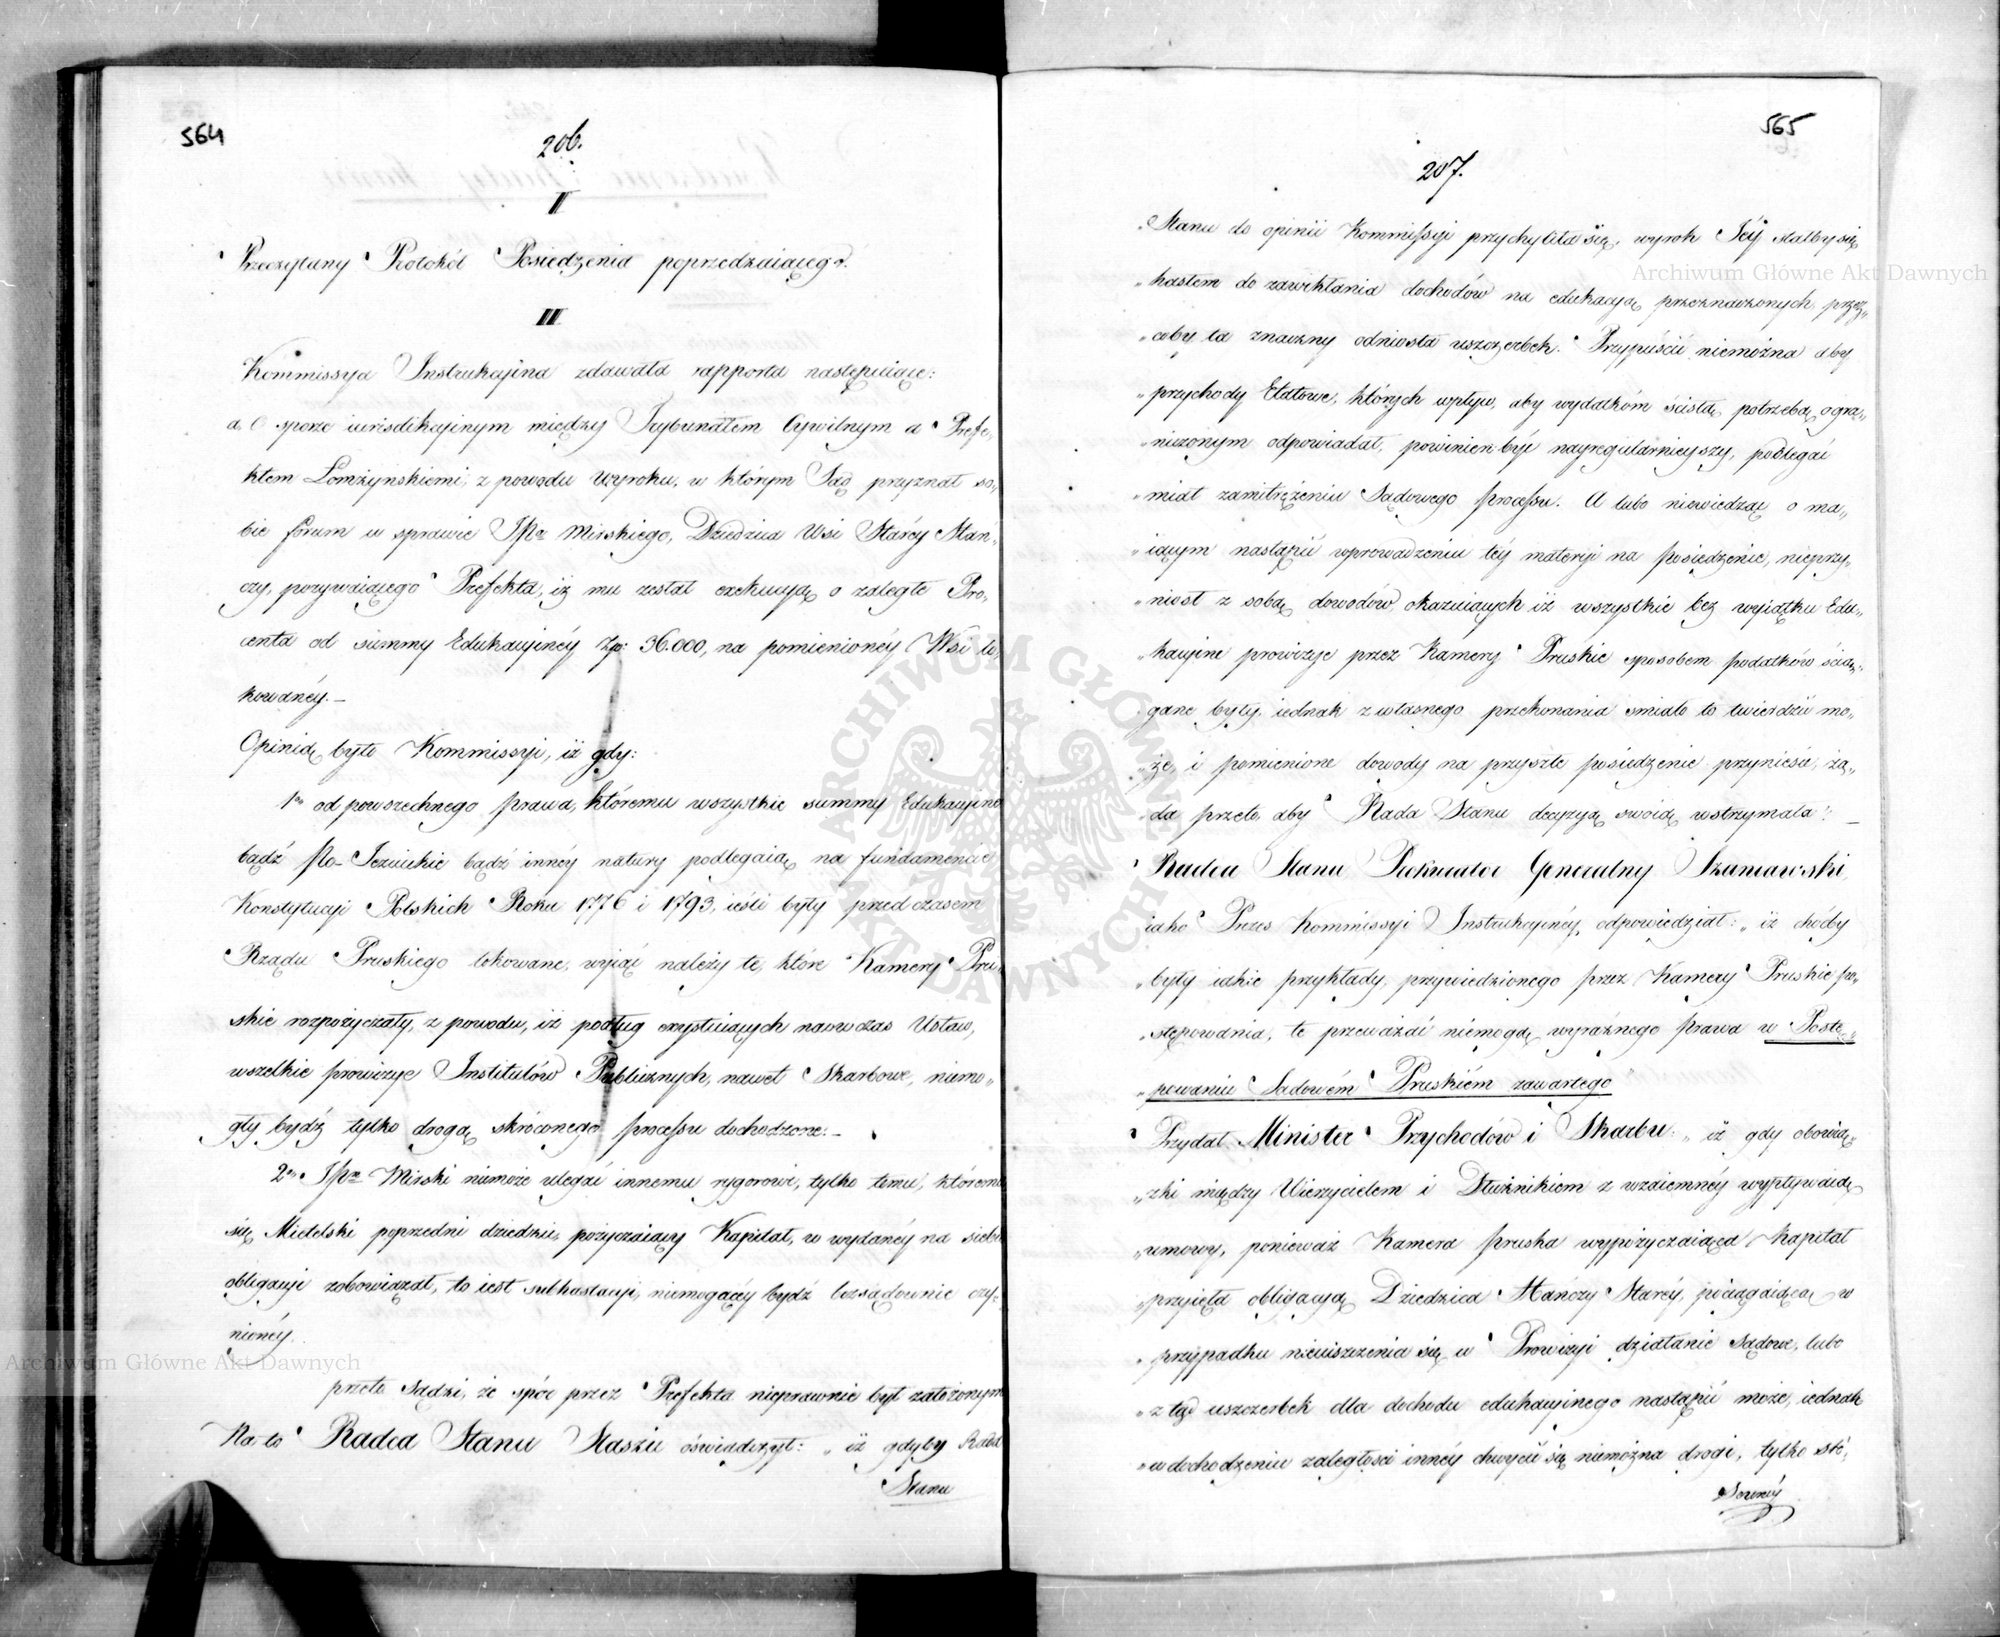 564
206.
II
Przeczytany Protokół Posiedzenia poprzedzaiącego.
III
Kommissya Instrukcyina zdawała rapporta następuiące:
a, O sporze iurisdikcyinym między Trybunałem Cywilnym a Prefe„
ktem Łomżynskiemi, z powodu Wyroku, w którym Sąd przyznał so„
bie forum w sprawie JPa Mirskiego, Dziedzica Wsi Staréy Stan„
czy, pozywaiącego Prefekta, iż mu zesłał exekucyą o zaległe Pro„
centa od summy Edukacyinéy Zp: 36.000, na pomienionéy Wsi lo„
kowanéy. _
Opinią było Kommissyi, iż gdy:
1mo od powszechnego prawa, któremu wszystkie summy Edukacyine
bądź po-Jezuickie bądź innéy natury podlegaią na fundamencie
Konstytucyi Polskich Roku 1776 i 1793, ieśli były przed czasem
Rządu Pruskiego lokowane, wyiąć należy te, które Kamery Pru„
skie rozpożyczały, z powodu, iż podług exystuiących nawczas Ustaw,
wszelkie prowizye Institutów Publicznych, nawet Skarbowe, niemo„
gły bydź tylko drogą skróconego processu dochodzone. _
2do JPan Mirski niemoże ulegać innemu rygorowi, tylko temu, któremu
się Mielelski poprzedni dziedzic, pożyczaiący Kapitał, w wydanéy na siebie
obligacyi zobowiązał, to iest subhastacyi, niemogącéy bydź bezsądownie czy„
nionéy.
przeto Sądzi, że spór przez Prefekta nieprawnie był założonym
Na to Radca Stanu Staszic oświadczył: „ iż gdyby Rada
Stanu
565
207.
„Stanu do opinii Kommissyi przychyliła się, wyrok Jéy stałby się
„hasłem do zawikłania dochodów na edukacyą przeznaczonych, przez„
„coby ta znaczny odniosła uszczerbek. Przypuścić niemożna aby
„przychody Etatowe, których wpływ, aby wydatkom ścisłą potrzebą ogra„
„niczonym odpowiadał, powinien być nayregularnieyszy, podlegać
„miał zamitrężeniu Sądowego processu. A lubo niewiedząc o ma„
„iącym nastąpić wprowadzeniu téy materyi na posiedzenie, nieprzy„
„niosł z sobą dowodów okazuiących iż wszystkie bez wyiątku Edu„
„kacyine prowizye przez Kamery Pruskie sposobem podatków ścią„
„gane były, iednak z własnego przekonania śmiało to twierdzić mo„
„że, i pomienione dowody na przyszłe posiedzenie przyniesie, żą„
„da przeto, aby Rada Stanu decyzyą swoią wstrzymała”. _
Radca Stanu Prokurator Generalny Szaniawski
iako Prezes Kommissyi Instrukcyinéy, odpowiedział: „ iż choćby
„były iakie przykłady, przywiedzionego przez Kamery Pruskie po„
„stępowania, te przeważać niemogą wyraźnego prawa w Postę„
„powaniu Sądowém Pruskiém zawartego”
Przydał Minister Przychodów i Skarbu: „ iż gdy obowią„
„zki między Wierzycielem i Dłużnikiem z wzaiemnéy wypływaią
„umowy, ponieważ Kamera pruska wypożyczaiąca Kapitał
„przyięła obligacyą Dziedzica Stańczy Staréy, pociągaiącą w
„przypadku nieuiszczenia się w Prowizyi działanie Sądowe, lubo
„z tąd uszczerbek dla dochodu edukacyinego nastąpić może, iednak
„w dochodzeniu zaległości innéy chwycić się niemożna drogi, tylko stó„
Sownéy
Archiwum Główne Akt Dawnych
Archiwum Główne Akt Dawnych
ARCHIWUM GŁÓWNE AKT DAWNYCH